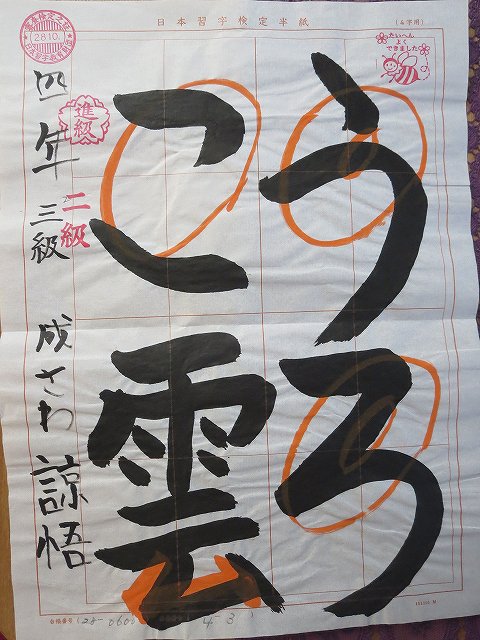 日本習字検定半紙
(4字用)
28.10.
たいへん
よく
できました
うろ
こ雲
進級
四年 三級 成さわ 諒悟
二級
台帳番号